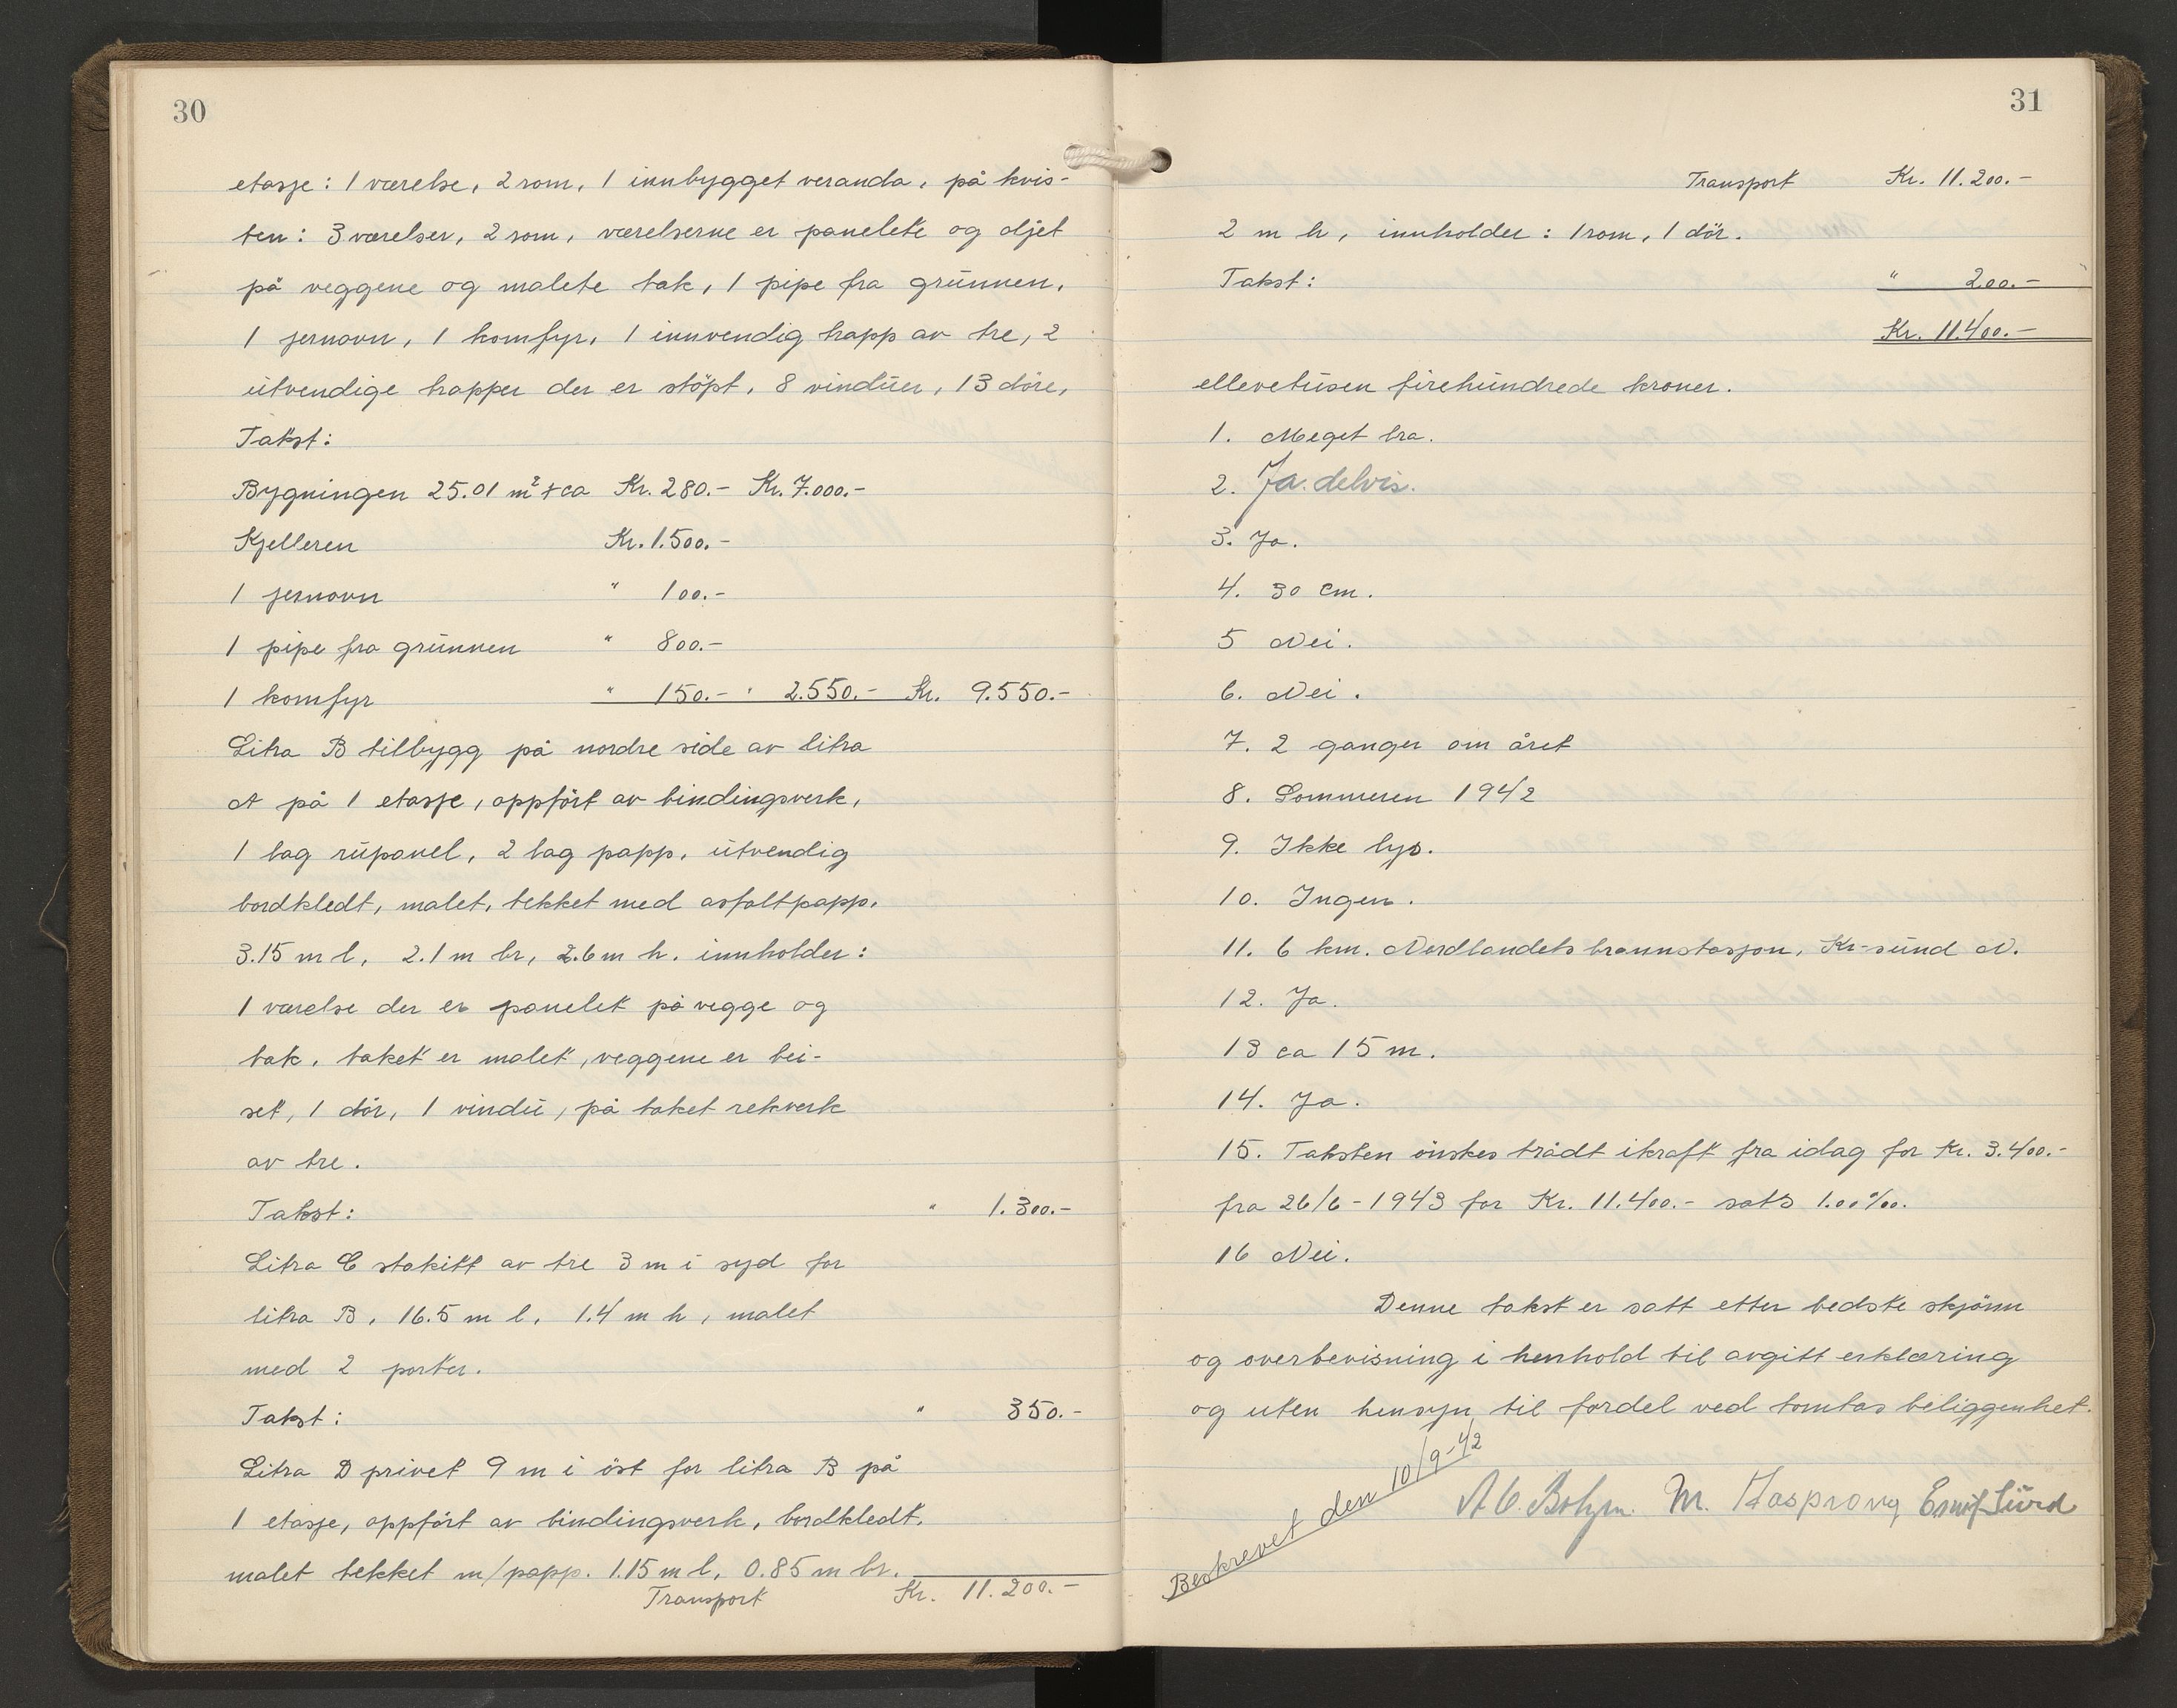 30
etasje: 1 værelse, 2 rom, 1 innbygget veranda, på kvis-
ten: 3 værelser, 2 rom, værelserne er panelete og oljet
på veggene og malete tak, 1 pipe fra grunnen,
1 jernovn, 1 komfyr, 1 innvendig trapp av tre, 2
utvendige trapper der er støpt, 8 vinduer, 13 döre,
Takst:
Bygningen 25.01 m² + ca Kr. 280.- Kr. 7.000.-
Kjelleren Kr. 1.500.-
1 jernovn " 100.-
1 pipe fra grunnen " 800.-
1 komfyr " 150.- " 2.550.- Kr. 9.550.-
Litra B tilbygg på nordre side av litra
A på 1 etasje, oppfört av bindingsverk,
1 lag rupanel, 2 lag papp, utvendig
bordkledt, malet, tekket med asfaltpapp.
3.15 m l, 2.1 m br, 2.6 m h. innholder:
1 værelse der er panelet på vegge og
tak, taket er malet, veggene er bei-
set, 1 dör, 1 vindu, på taket rekverk
av tre.
Takst: " 1.300.-
Litra C stakitt av tre 3 m i syd for
litra B, 16.5 m l, 1.4 m h, malet
med 2 porter.
Takst: " 350.-
Litra D privet 9 m i öst for litra B på
1 etasje, oppfört av bindingsverk, bordkledt,
malet tekket m/papp. 1.15 m l, 0.85 m br.
Transport Kr. 11.200.-
31
Transport Kr. 11.200.-
2 m h, innholder: 1 rom, 1 dör.
Takst: " 200.-
Kr. 11.400.-
ellevetusen firehundrede kroner.
1. Meget bra.
2. Ja. delvis.
3. Ja.
4. 30 cm.
5 Nei.
6. Nei.
7. 2 ganger om året
8. Sommeren 1942
9. Ikke lys.
10. Ingen.
11. 6 km. Nordlandets brannstasjon, Kr-sund N.
12. Ja.
13 ca 15 m.
14. Ja.
15. Taksten önskes trådt ikraft fra idag for Kr. 3.400.-
fra 26/6-1943 for Kr. 11.400.- sats 1.00‰.
16 Nei.
Denne takst er satt etter bedste skjönn
og overbevisning i henhold til avgitt erklæring
og uten hensyn til fordel ved tomtas beliggenhet.
Beskrevet den 10/9-42
M.